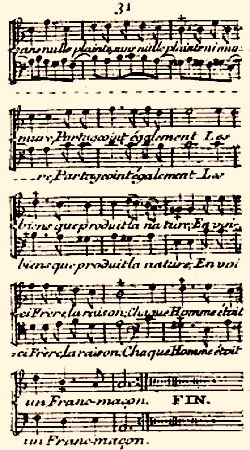 31
sans nulle plainte, sans nulle plainte ni mur
mure, Partageoint également Les
re, Partageoint également Les
biens que produit la nature, En voi
biens que produit la nature, En voi
ci Frère, la raison, Chaque Homme étoit
ci Frère, la raison, Chaque Homme étoit
un Franc-maçon. FIN.
un Franc-maçon.